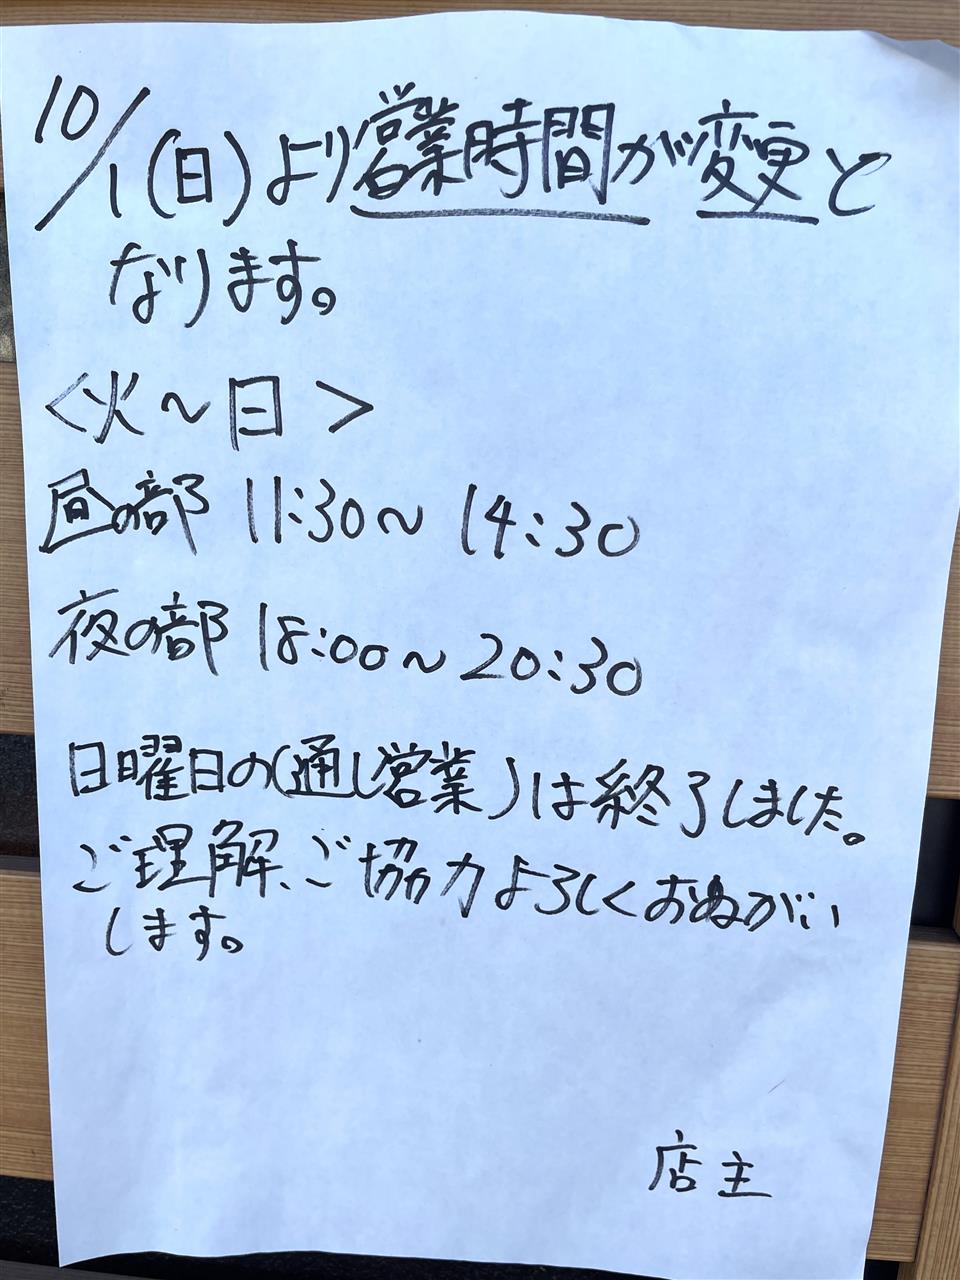 10/1(日)より営業時間が変更と
なります。
<火~日>
昼の部 11:30~14:30
夜の部 18:00~20:30
日曜日の(通し営業)は終了しました。
ご理解、ご協力よろしくおねがい
します。
店主